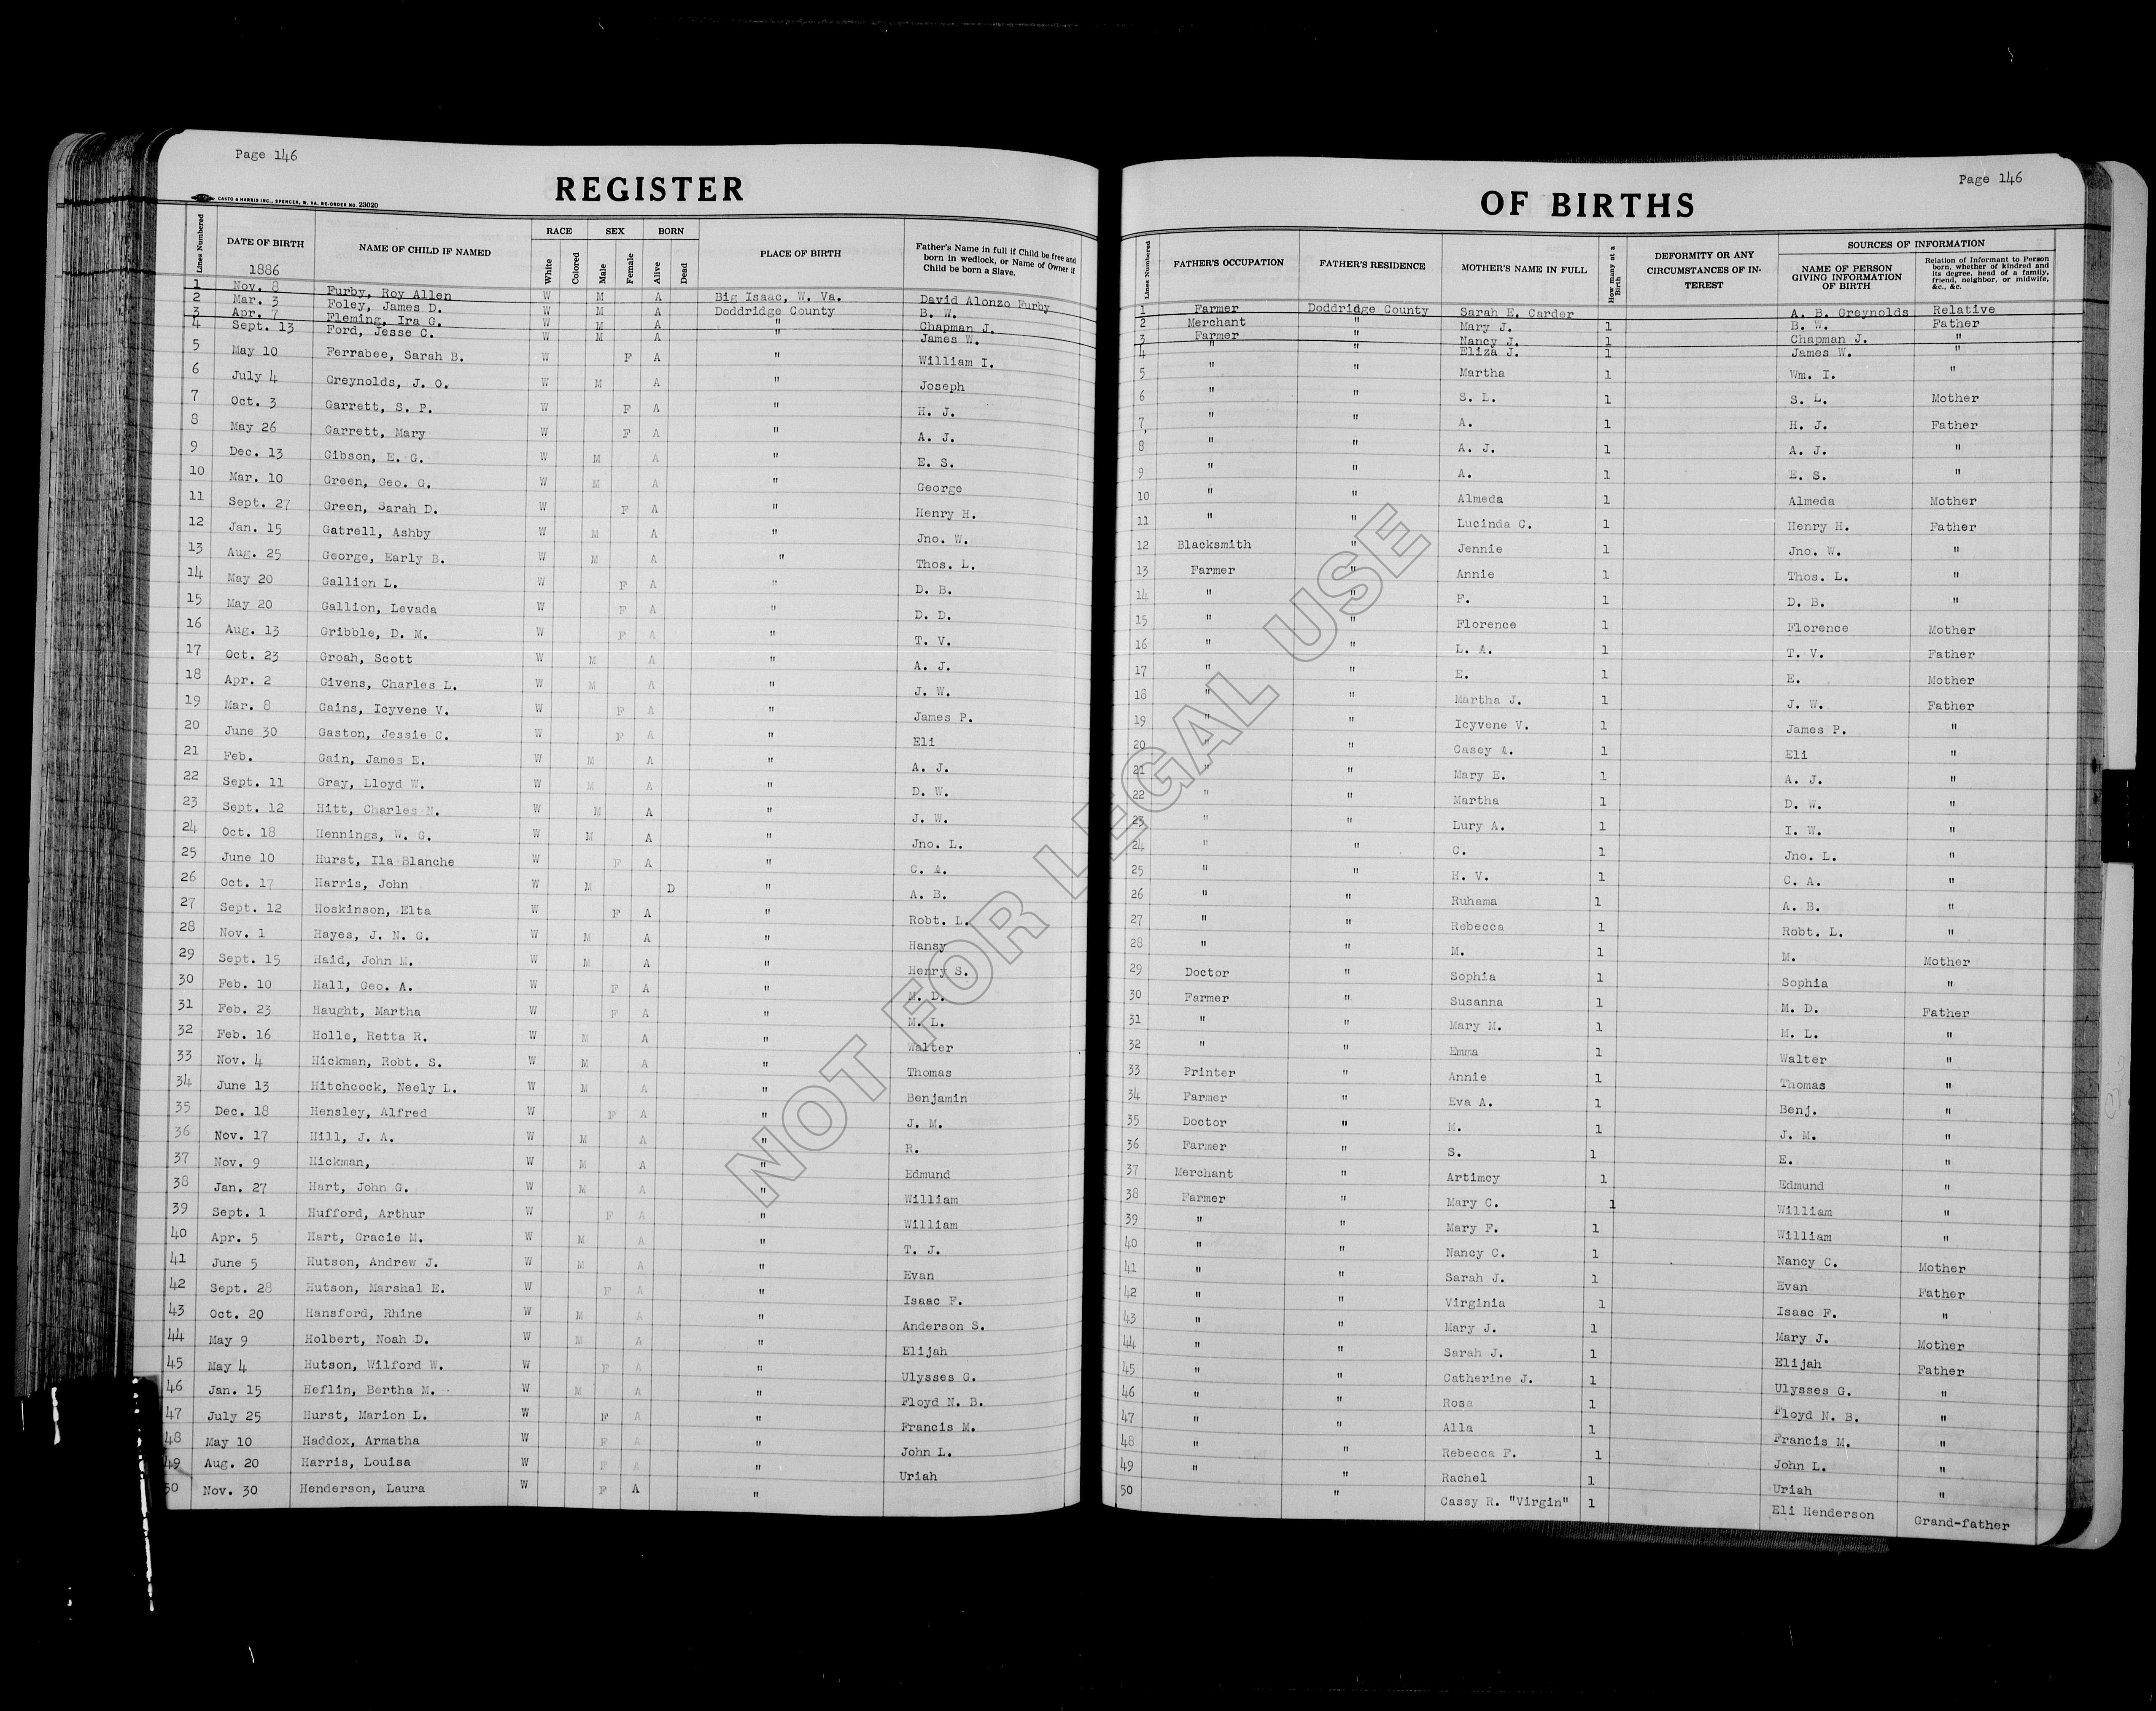 Page 146
REGISTER
CASTO & HARRIS INC., SPENCER, W. VA. RE-ORDER NO. 23020
Lines Numbered DATE OF BIRTH NAME OF CHILD IF NAMED RACE White Colored SEX Male Female BORN Alive Dead PLACE OF BIRTH Father's Name in full if Child be free and born in wedlock, or Name of Owner if Child be born a Slave.
1886
1 Nov. 8 Furby, Roy Allen W M A Big Isaac, W. Va. David Alonzo Furby
2 Mar. 3 Foley, James D. W M A Doddridge County B. W.
3 Apr. 7 Fleming, Ira G. W M A " Chapman J.
4 Sept. 13 Ford, Jesse C. W M A " James W.
5 May 10 Ferrabee, Sarah B. W F A " William I.
6 July 4 Greynolds, J. O. W M A " Joseph
7 Oct. 3 Garrett, S. P. W F A " H. J.
8 May 26 Garrett, Mary W F A " A. J.
9 Dec. 13 Gibson, E. G. W M A " E. S.
10 Mar. 10 Green, Geo. G. W M A " George
11 Sept. 27 Green, Sarah D. W F A " Henry H.
12 Jan. 15 Gatrell, Ashby W M A " Jno. W.
13 Aug. 25 George, Early B. W M A " Thos. L.
14 May 20 Gallion L. W F A " D. B.
15 May 20 Gallion, Levada W F A " D. D.
16 Aug. 13 Gribble, D. M. W F A " T. V.
17 Oct. 23 Groah, Scott W M A " A. J.
18 Apr. 2 Givens, Charles L. W M A " J. W.
19 Mar. 8 Gains, Icyvene V. W F A " James P.
20 June 30 Gaston, Jessie C. W F A " Eli
21 Feb. Gain, James E. W M A " A. J.
22 Sept. 11 Gray, Lloyd W. W M A " D. W.
23 Sept. 12 Hitt, Charles N. W M A " J. W.
24 Oct. 18 Hennings, W. G. W M A " Jno. L.
25 June 10 Hurst, Ila Blanche W F A " C. A.
26 Oct. 17 Harris, John W M D " A. B.
27 Sept. 12 Hoskinson, Elta W F A " Robt. L.
28 Nov. 1 Hayes, J. N. G. W M A " Hansy
29 Sept. 15 Haid, John M. W M A " Henry S.
30 Feb. 10 Hall, Geo. A. W F A " M. D.
31 Feb. 23 Haught, Martha W F A " M. L.
32 Feb. 16 Holle, Retta R. W M A " Walter
33 Nov. 4 Hickman, Robt. S. W M A " Thomas
34 June 13 Hitchcock, Neely L. W M A " Benjamin
35 Dec. 18 Hensley, Alfred W F A " J. M.
36 Nov. 17 Hill, J. A. W M A " R.
37 Nov. 9 Hickman, W M A " Edmund
38 Jan. 27 Hart, John G. W M A " William
39 Sept. 1 Hufford, Arthur W F A " William
40 Apr. 5 Hart, Gracie M. W M A " T. J.
41 June 5 Hutson, Andrew J. W M A " Evan
42 Sept. 28 Hutson, Marshal E. W F A " Isaac F.
43 Oct. 20 Hansford, Rhine W M A " Anderson S.
44 May 9 Holbert, Noah D. W M A " Elijah
45 May 4 Hutson, Wilford W. W F A " Ulysses G.
46 Jan. 15 Heflin, Bertha M. W M A " Floyd N. B.
47 July 25 Hurst, Marion L. W F A " Francis M.
48 May 10 Haddox, Armatha W F A " John L.
49 Aug. 20 Harris, Louisa W F A " Uriah
50 Nov. 30 Henderson, Laura W F A "
Page 146
OF BIRTHS
Lines Numbered FATHER'S OCCUPATION FATHER'S RESIDENCE MOTHER'S NAME IN FULL How many at a Birth DEFORMITY OR ANY CIRCUMSTANCES OF INTEREST SOURCES OF INFORMATION NAME OF PERSON GIVING INFORMATION OF BIRTH Relation of Informant to Person born, whether of kindred and its degree, head of a family, friend, neighbor, or midwife, &c., &c.
1 Farmer Doddridge County Sarah E. Carder A. B. Greynolds Relative
2 Merchant " Mary J. 1 B. W. Father
3 Farmer " Nancy J. 1 Chapman J. "
4 " " Eliza J. 1 James W. "
5 " " Martha 1 Wm. I. "
6 " " S. L. 1 S. L. Mother
7 " " A. 1 H. J. Father
8 " " A. J. 1 A. J. "
9 " " A. 1 E. S. "
10 " " Almeda 1 Almeda Mother
11 " " Lucinda C. 1 Henry H. Father
12 Blacksmith " Jennie 1 Jno. W. "
13 Farmer " Annie 1 Thos. L. "
14 " " F. 1 D. B. "
15 " " Florence 1 Florence Mother
16 " " L. A. 1 T. V. Father
17 " " E. 1 E. Mother
18 " " Martha J. 1 J. W. Father
19 " " Icyvene V. 1 James P. "
20 " " Casey A. 1 Eli "
21 " " Mary E. 1 A. J. "
22 " " Martha 1 D. W. "
23 " " Lury A. 1 I. W. "
24 " " C. 1 Jno. L. "
25 " " H. V. 1 C. A. "
26 " " Ruhama 1 A. B. "
27 " " Rebecca 1 Robt. L. "
28 " " M. 1 M. Mother
29 Doctor " Sophia 1 Sophia "
30 Farmer " Susanna 1 M. D. Father
31 " " Mary M. 1 M. L. "
32 " " Emma 1 Walter "
33 Printer " Annie 1 Thomas "
34 Farmer " Eva A. 1 Benj. "
35 Doctor " M. 1 J. M. "
36 Farmer " S. 1 E. "
37 Merchant " Artimcy 1 Edmund "
38 Farmer " Mary C. 1 William "
39 " " Mary F. 1 William "
40 " " Nancy C. 1 Nancy C. Mother
41 " " Sarah J. 1 Evan Father
42 " " Virginia 1 Isaac F. "
43 " " Mary J. 1 Mary J. Mother
44 " " Sarah J. 1 Elijah Father
45 " " Catherine J. 1 Ulysses G. "
46 " " Rosa 1 Floyd N. B. "
47 " " Alla 1 Francis M. "
48 " " Rebecca F. 1 John L. "
49 " " Rachel 1 Uriah "
50 " Cassy R. "Virgin" 1 Eli Henderson Grand-father
NOT FOR LEGAL USE